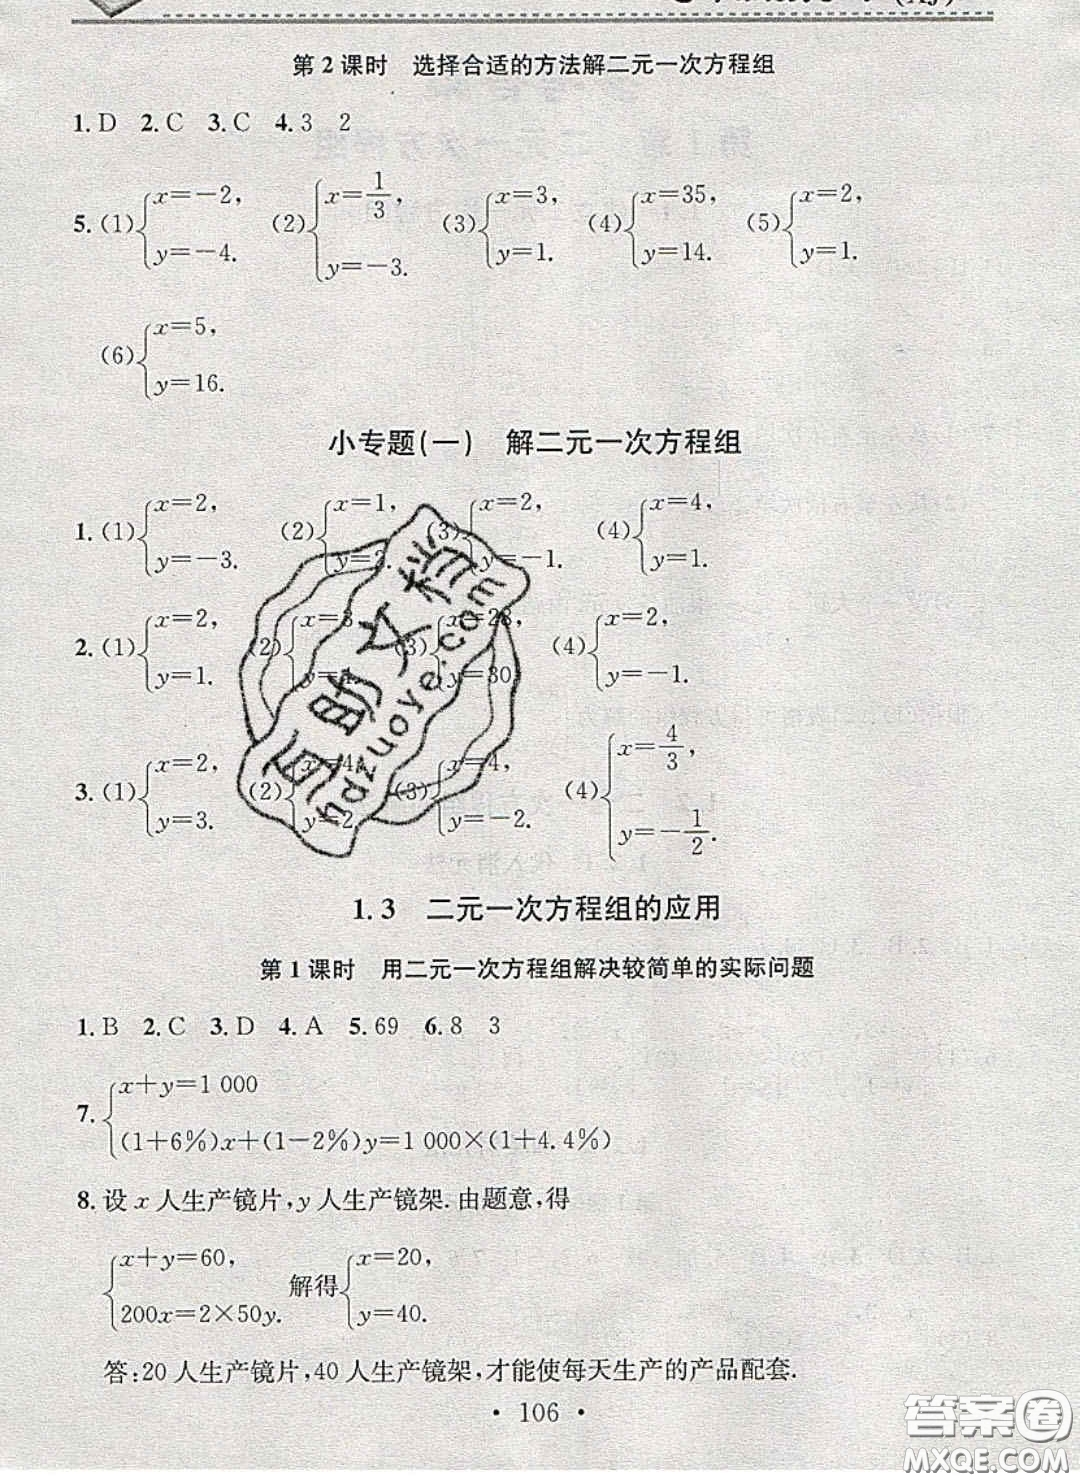 (XJ)
第2课时 选择合适的方法解二元一次方程组
1.D 2.C 3.C 4.3 2
5.(1){x=-2, y=-4. (2){x=1/3, y=-3. (3){x=3, y=1. (4){x=35, y=14. (5){x=2, y=1.
(6){x=5, y=16.
小专题(一) 解二元一次方程组
1.(1){x=2, y=-3. (2){x=1, y= (3){x=2, y=-1. (4){x=4, y=1.
2.(1){x=2, y=1. (2){x=3 y= (3){x=28, y=30 (4){x=2, y=-1.
3.(1){x=2, y=3. (2){x=4, y=2 (3){x=4, y=-2. (4){x=4/3, y=-1/2.
1.3 二元一次方程组的应用
第1课时 用二元一次方程组解决较简单的实际问题
1.B 2.C 3.D 4.A 5.69 6.8 3
7.{x+y=1 000
(1+6%)x+(1-2%)y=1 000×(1+4.4%)
8.设 x 人生产镜片,y 人生产镜架.由题意,得
{x+y=60, 200x=2×50y. 解得{x=20, y=40.
答:20人生产镜片,40人生产镜架,才能使每天生产的产品配套.
• 106 •
百助文档
nazuoye.com
答案圈
MXQE.COM